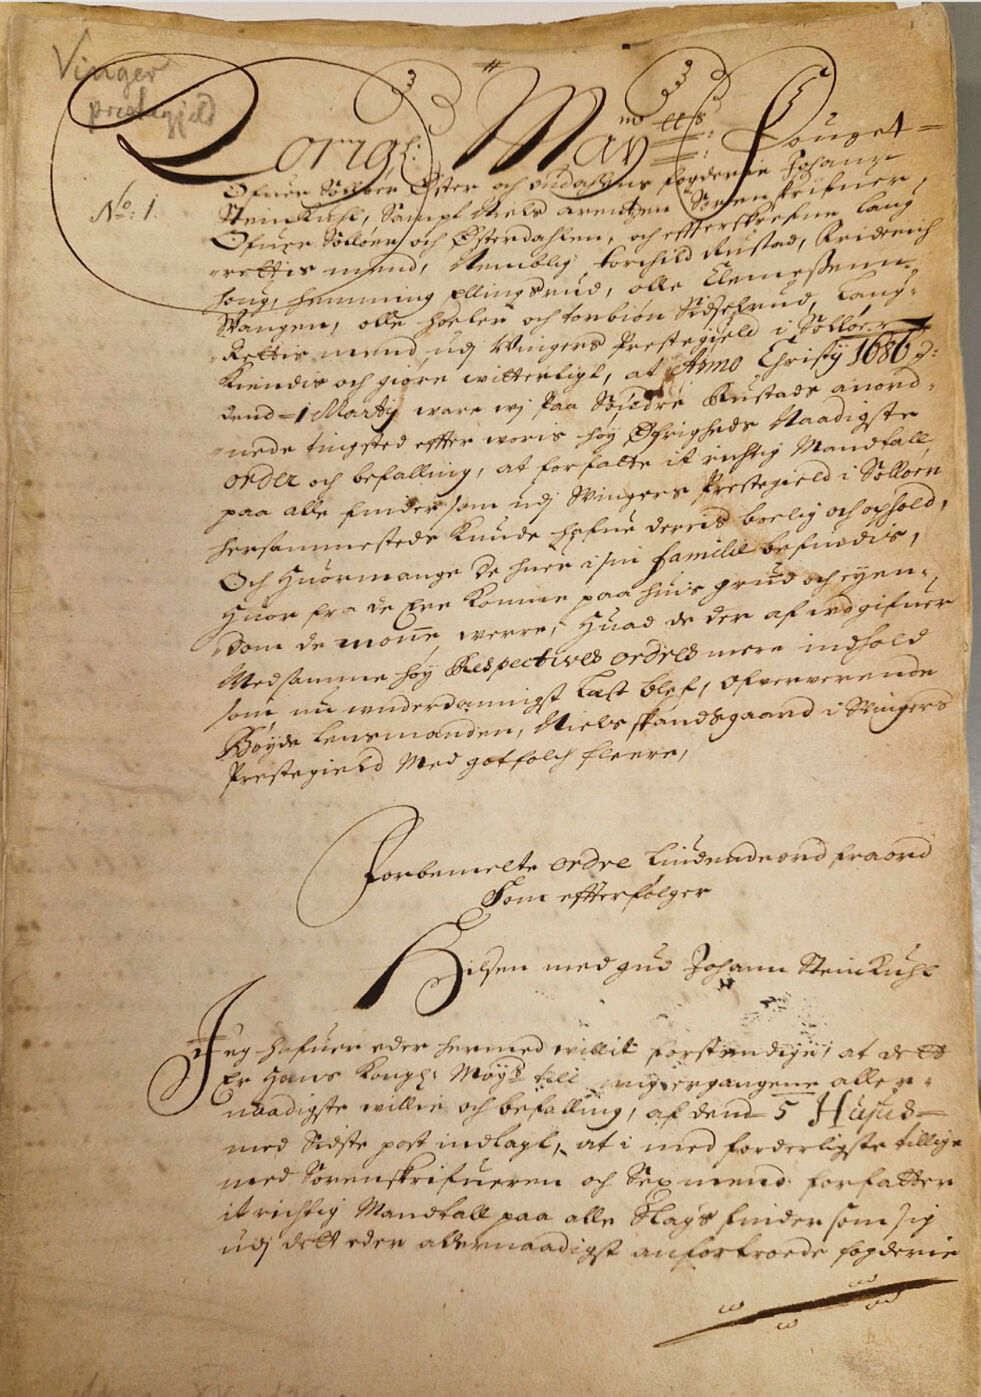 Vinger
prestegjeld
No: 1.
Kongl: May: tts Fouget
Ofuer Solløer Øster och oudahlens fogderie Johann
Steinkuhl, Sampt Niels arentzen Sorenskrifuer,
Ofuer Solløer och Østerdahlen, och effterskrefne laug
rettis mend, Nemblig torchild Rustad, Friderich
houg, hemming Ellingsrud, olle Clemessenn
Wangen, olle hoeler och torbiøn Sidselrud, laug-
Rettis mend udj Wingers Prestegield i Solløer
Kiendis och giøre witterligt, at Anno Christy 1686
dend 1 Marty ware wj paa Søndre Rustads anord-
nede tingsted effter woris høy Øfrigheds Naadigste
order och befalling, at forfatte it richtig Mandtall
paa alle finder som udj Wingers Prestegield i Solloer
hersammesteds kunde hafue derris boelig och ophold,
Och Huormange de huer i sin familie befindis,
Huor fra de Ere komne paa huis grund och eyen-
dom de monne werre, Huad de der af udgifuer
Medsamme høy Respectives ordres mere indhold
som nu underdannigst læst blef, Ofververende
Bøyde lensmanden, Niels skandsgaard i Wingers
Prestegield Med gotfolch fleere,
Forbemelte ordre liudende ord fra ord
Som effterfølger
Hilsen med gud Johann Steinkuhl
Jeg hafuer eder hermed willit forstendige, at dett
Er Hans Kongl: Mayts till mig ergangene aller-
naadigste willie och befalling, af dend 5 Hujus
med Sidste post indlagt, at i med forderligste tillige
med Sorenskrifueren och Sex mend forfatter
it richtig Mandtall paa alle Slags finder som sig
udj dett eder allernaadigst anfortroede fogderie